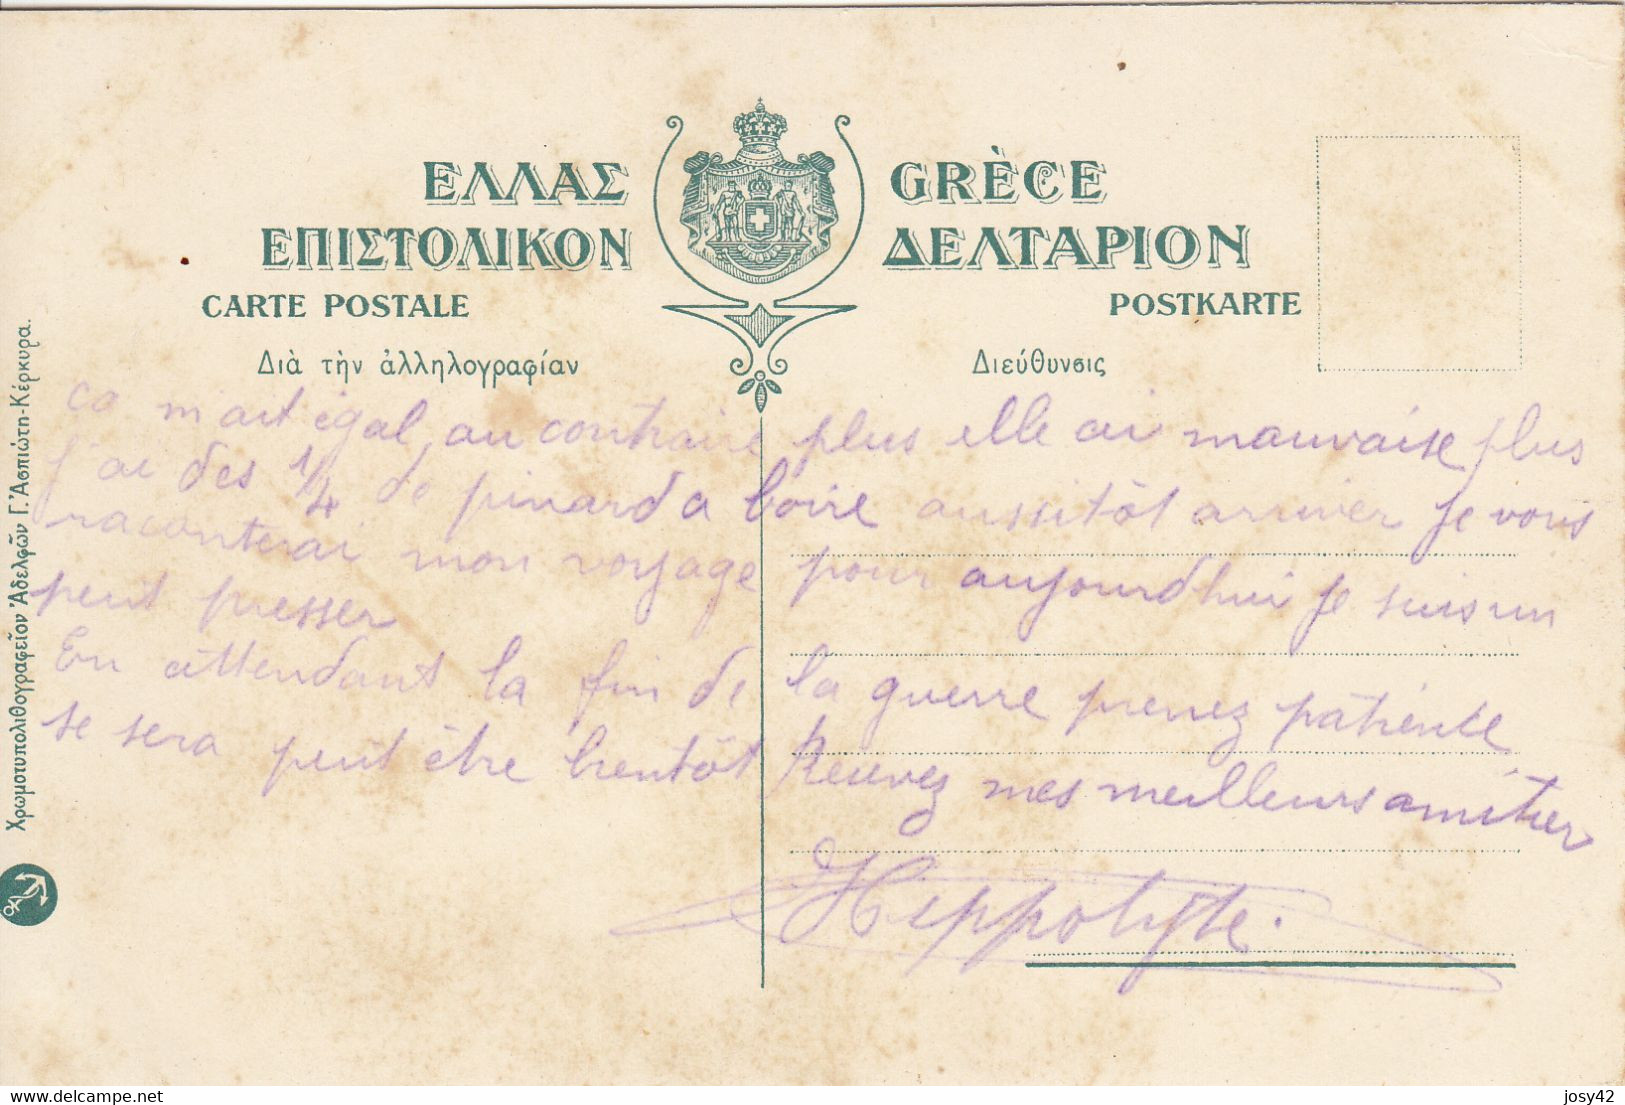 ΕΛΛΑΣ GRÈCE
ΕΠΙΣΤΟΛΙΚΟΝ ΔΕΛΤΑΡΙΟΝ
CARTE POSTALE POSTKARTE
Διὰ τὴν ἀλληλογραφίαν Διεύθυνσις
ca m'ait égal, au contraire plus elle ai mauvaise plus
j'ai des 1/4 de pinard a boire aussitôt arriver je vous
raconterai mon voyage pour aujourdhui je suis un
peut presser
En attendant la fin de la guerre prenez patience
se sera peut être bientôt Recevez mes meilleurs amitier
Hippolyte.
Χρωμοτυπολιθογραφεῖον Ἀδελφῶν Γ. Ἀσπιώτη-Κέρκυρα.
delcampe.net josy42